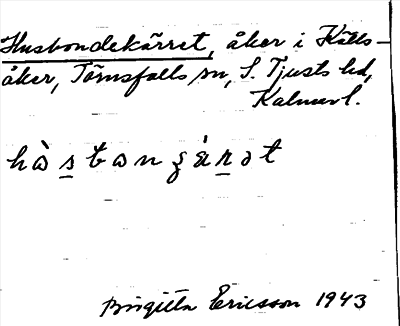 Husbondekärret, åker i Källs-
åker, Törnsfalls sn, S. Tjusts hd,
Kalmar l.
hòsbonʒárət
Birgitta Ericsson 1943